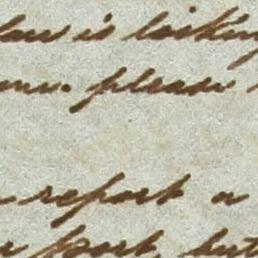 is looking
please
report a
port, but